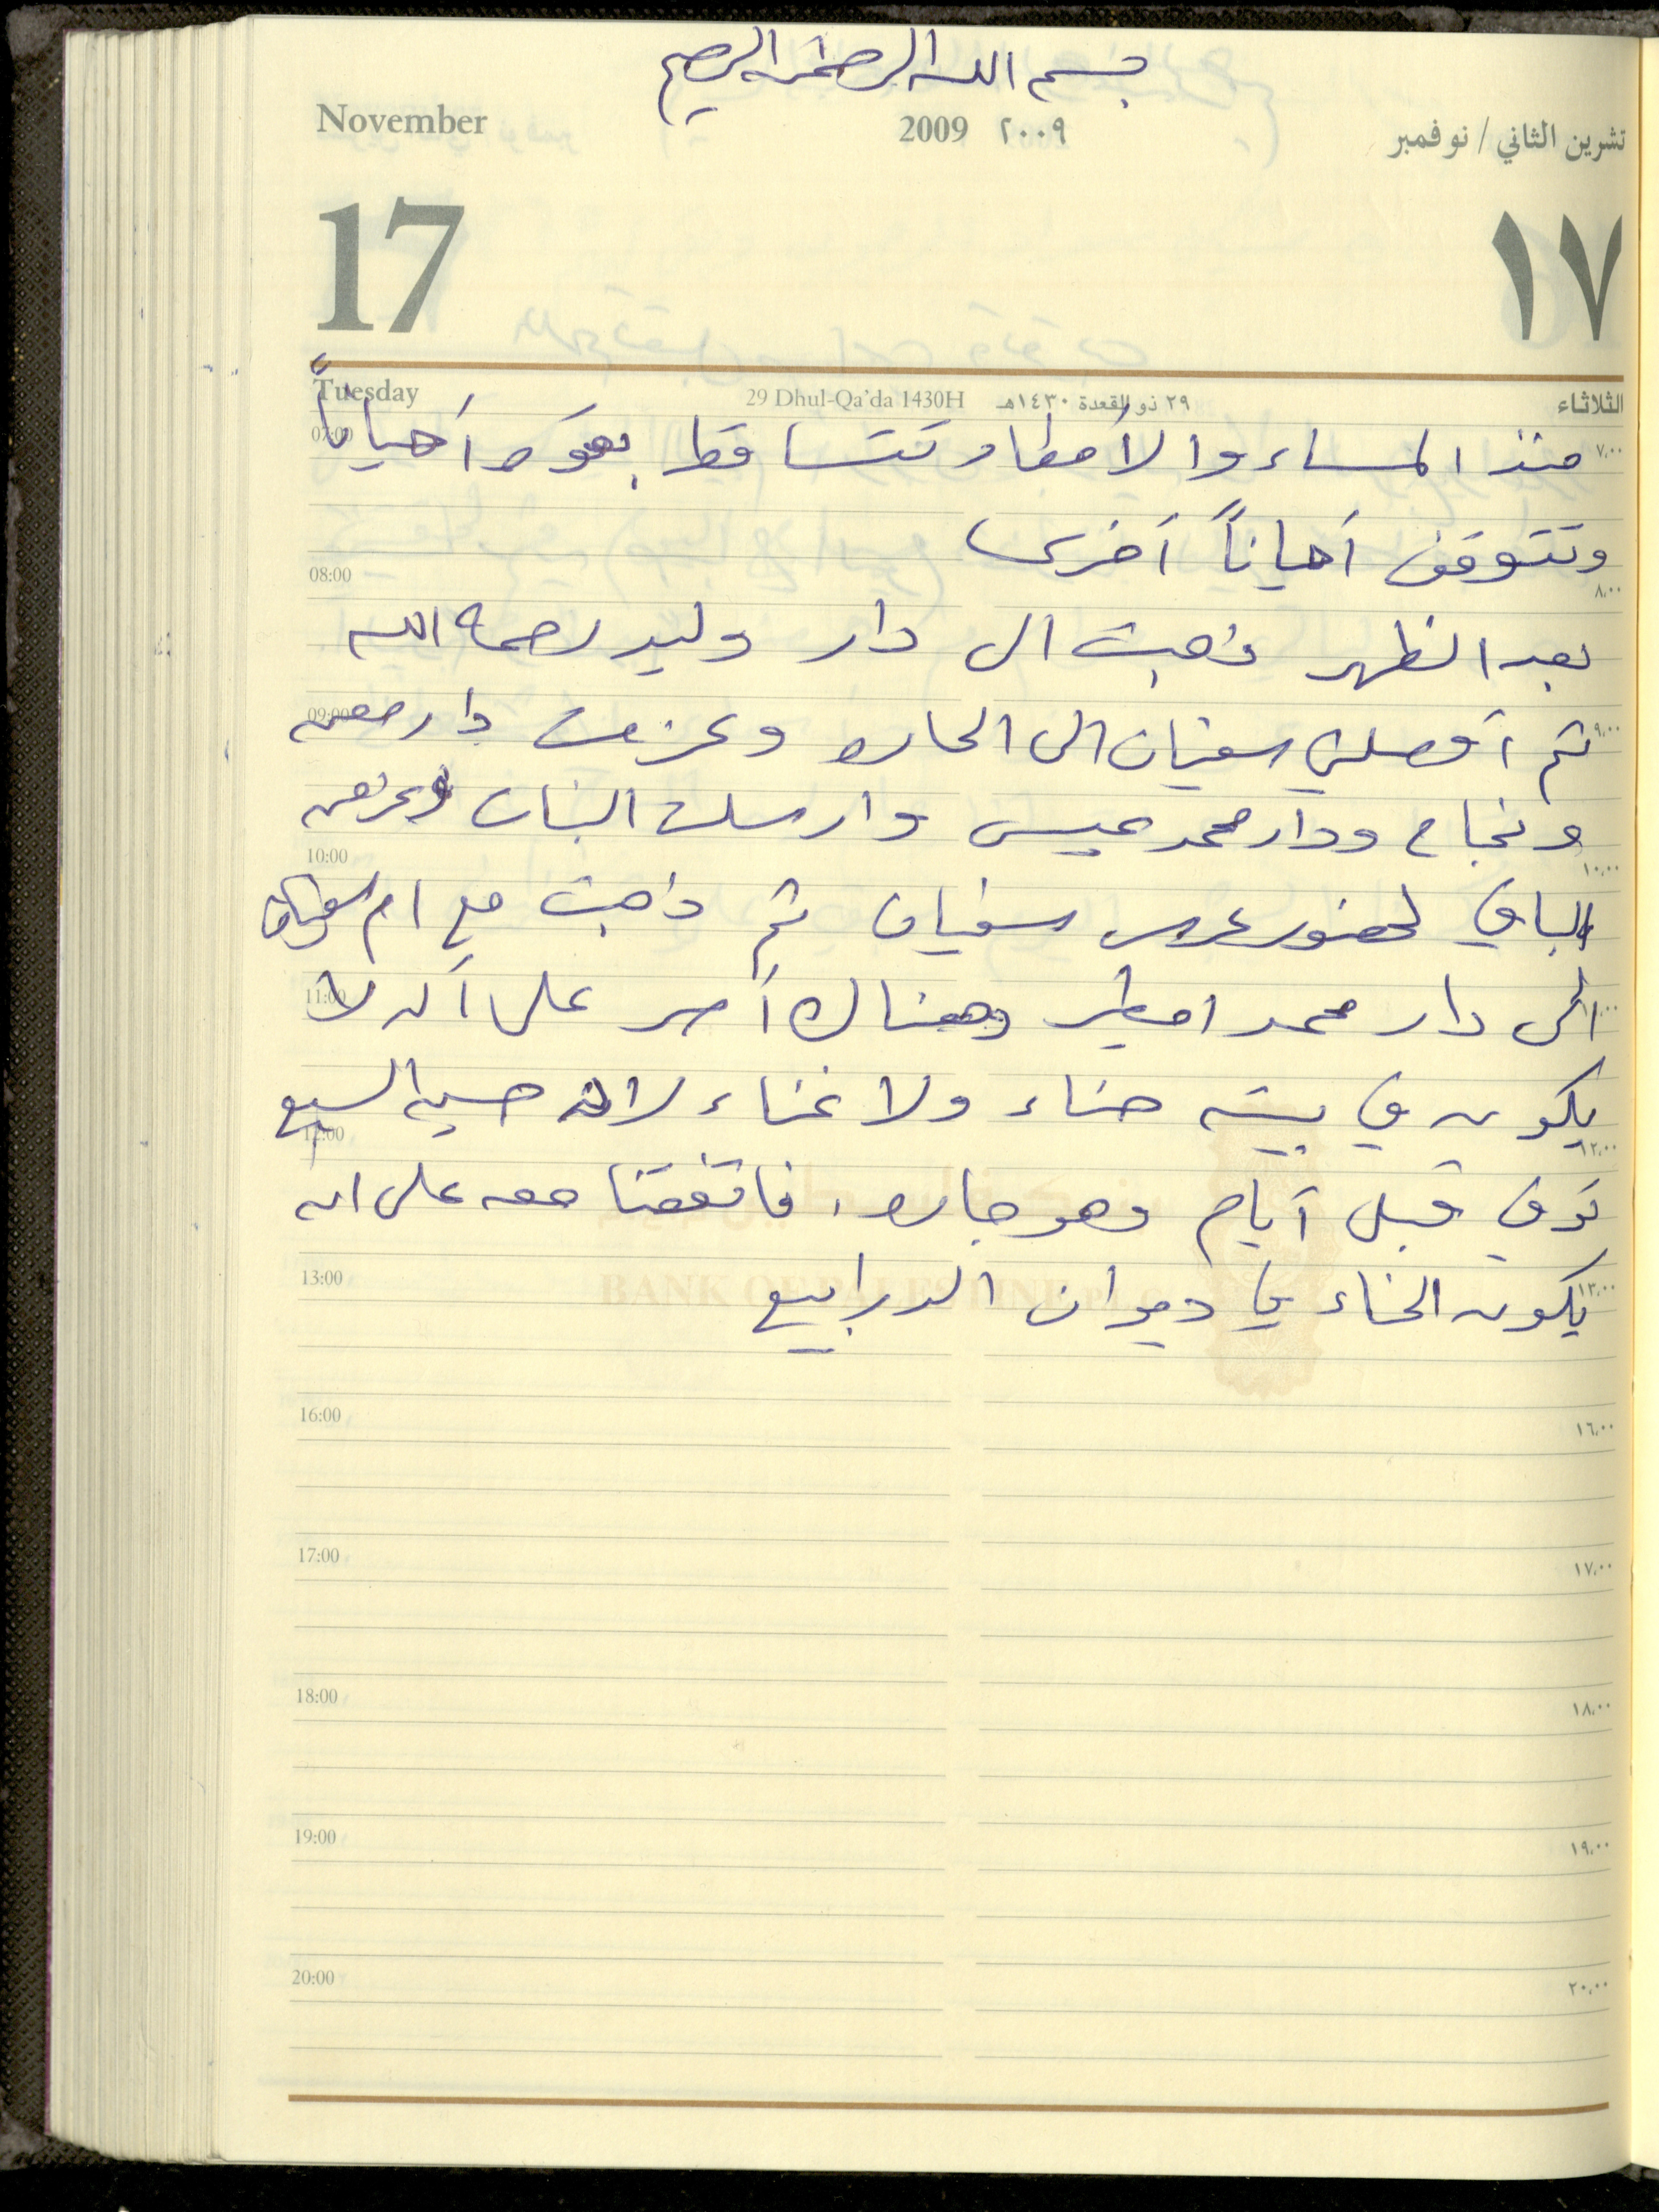 بسم الله الرحمن الرحيم
November 2009 ٢٠٠٩ تشرين الثاني / نوفمبر
17 ١٧
Tuesday 29 Dhul-Qa'da 1430H ٢٩ ذو القعدة ١٤٣٠هـ الثلاثاء
07:00 ٧،٠٠
منذ المساء والأمطار تتساقط بقوة أحياناً
وتتوقف أحياناً أخرى
08:00 ٨،٠٠
بعد الظهر ذهبت الى دار وليد رحمه الله
09:00 ٩،٠٠
ثم أوصلني سفيان الى الحارة وعزمت دار معن
ونجاح ودار محمد عيسى وارسلت البنات
10:00 ١٠،٠٠
الباقي لحضور عرس سفيان ثم ذهبت مع ام سفيان
11:00 ١١،٠٠
الى دار محمد امطير وهناك أصر على أن لا
يكون في بيته حناء ولا غناء لان حسين السبع
12:00 ١٢،٠٠
توفي قبل أيام وهو جاره، فاتفقنا معه على ان
13:00 ١٣،٠٠
يكون الحناء في ديوان الدرابيع
BANK OF PALESTINE
16:00 ١٦،٠٠
17:00 ١٧،٠٠
18:00 ١٨،٠٠
19:00 ١٩،٠٠
20:00 ٢٠،٠٠